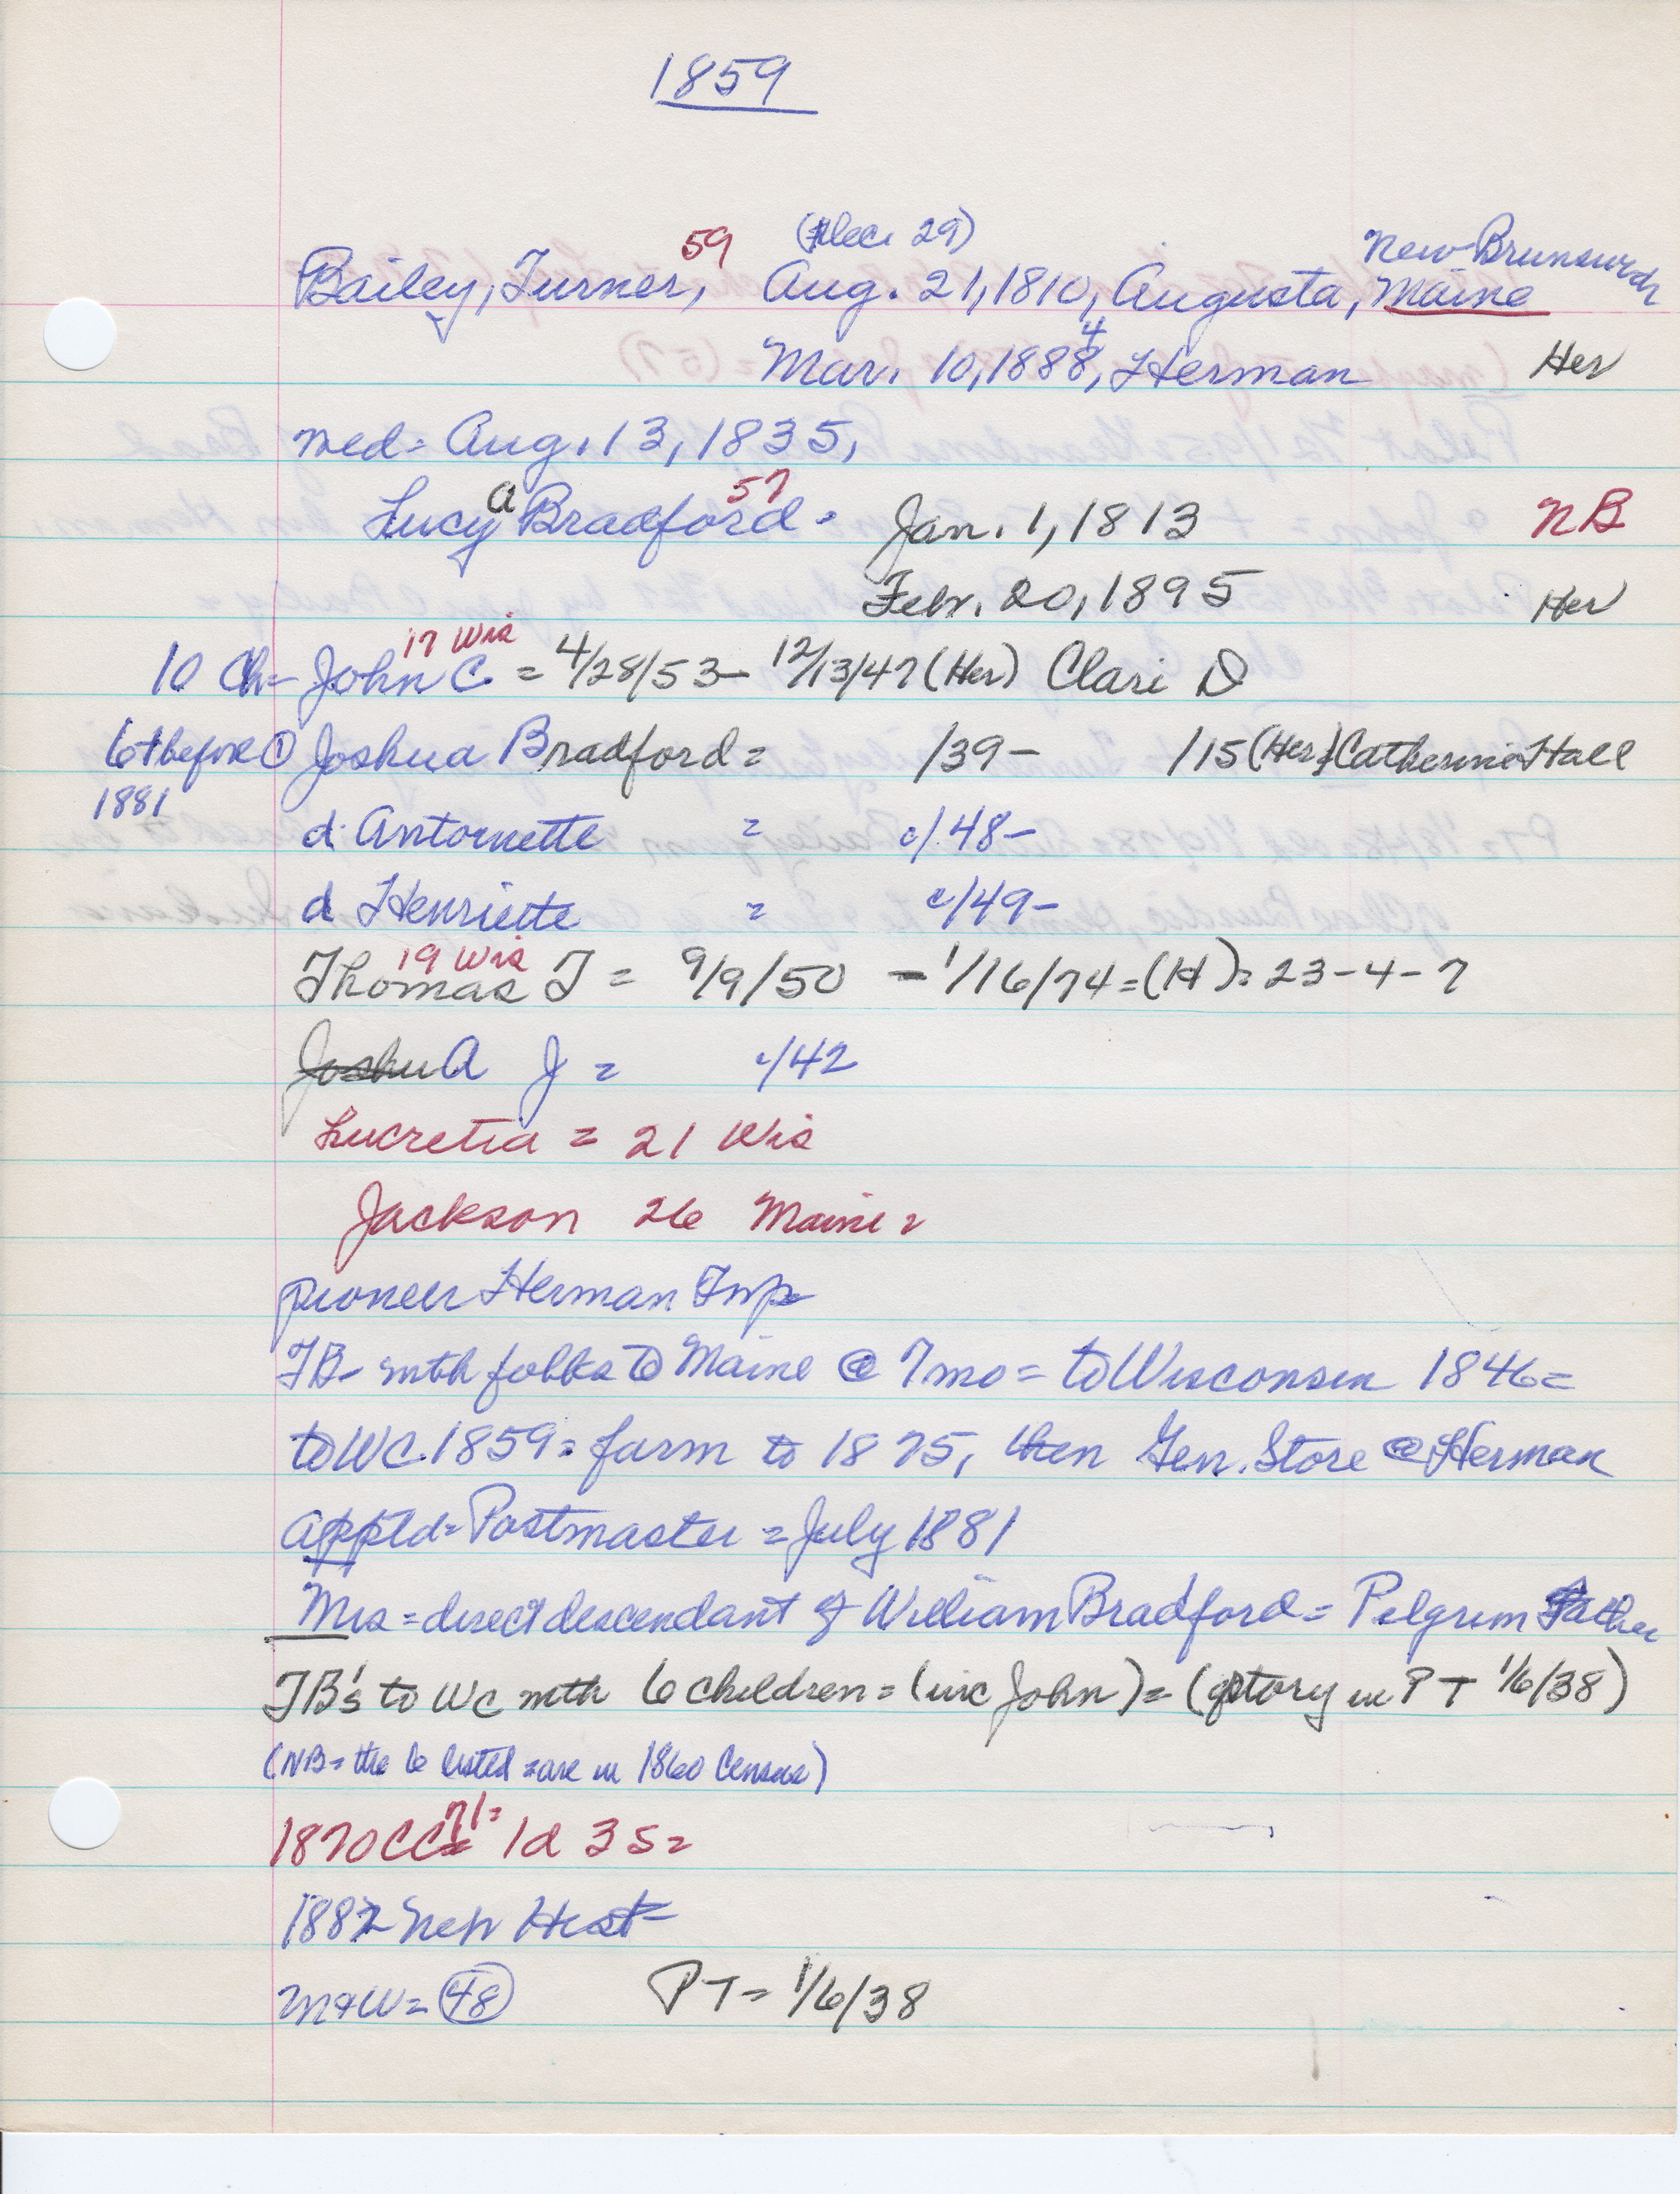 1859
59 (Dec. 29) New Brunswick
Bailey, Turner, Aug. 21, 1810, Augusta, Maine
4
Mar. 10, 1888, Herman Her
med = Aug. 13, 1835,
a 57
Lucy Bradford - Jan. 1, 1813 NB
Febr. 20, 1895 Her
17 Wis
10 Ch = John C. = 4/28/53 - 12/13/47 (Her) Clari D
6 + before ① Joshua Bradford = /39 - /15 (Her) Catherine Hall
1881
d. Antoinette = c/48 -
d Henriette = c/49 -
19 Wis
Thomas T = 9/9/50 - 1/16/74 = (H) = 23-4-7
JoshuA J = c/42
Lucretia = 21 Wis
Jackson 26 Maine =
pioneer Herman Twp
TB - with folks to Maine @ 7 mo = to Wisconsin 1846 =
to WC. 1859 = farm to 1875, then Gen. Store @ Herman
apptd = Postmaster = July 1881
Mrs = direct descendant of William Bradford = Pilgrim Father
TB's to WC with 6 children = (inc John) = (story in PT 1/6/38)
(NB = the 6 listed = are in 1860 Census)
71 =
1870 CC = 1d 3s =
1882 Hist =
M+W = 48 PT = 1/6/38